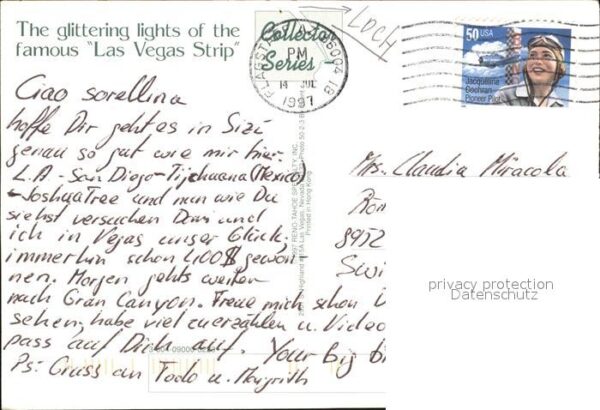 The glittering lights of the
famous "Las Vegas Strip"
Collectors
Series
FLAGSTAFF 86004
PM
14 JUL
1997
LOCH
50 USA
Jacqueline
Cochran
Pioneer Pilot
Ciao sorellina
hoffe Dir geht es in Sizi
genau so gut wie mir hier.
L.A - San Diego - Tijchuana (Mexico)
- JoshuaTree und nun wie Du
siehst versuchen Dani und
ich in Vegas unser Glück,
immerhin schon 400$ gewon
nen. Morgen gehts weiter
nach Gran Canyon. Freue mich schon
sehen, habe viel zu erzählen u. Video
pass auf Dich auf. Your Big
Ps: Gruss an Todo u.
Ms. Claudia Miracola
Röm
8952
Swi
RENO-TAHOE SPECIALTY, INC.
Las Vegas, Nevada
Printed in Hong Kong
privacy protection
Datenschutz